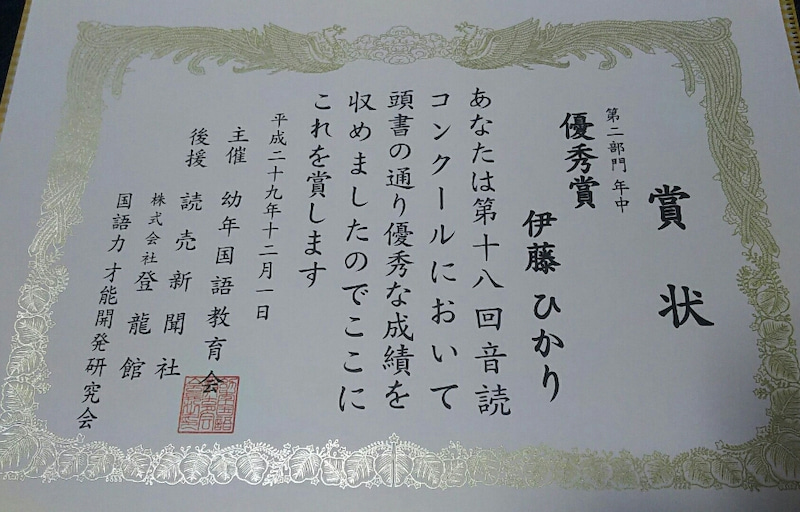 賞状
第二部門 年中
優秀賞
伊藤 ひかり
あなたは第十八回音読
コンクールにおいて
頭書の通り優秀な成績を
収めましたのでここに
これを賞します
平成二十九年十二月一日
主催 幼年国語教育会
後援 読売新聞社
株式会社登龍館
国語力才能開発研究会